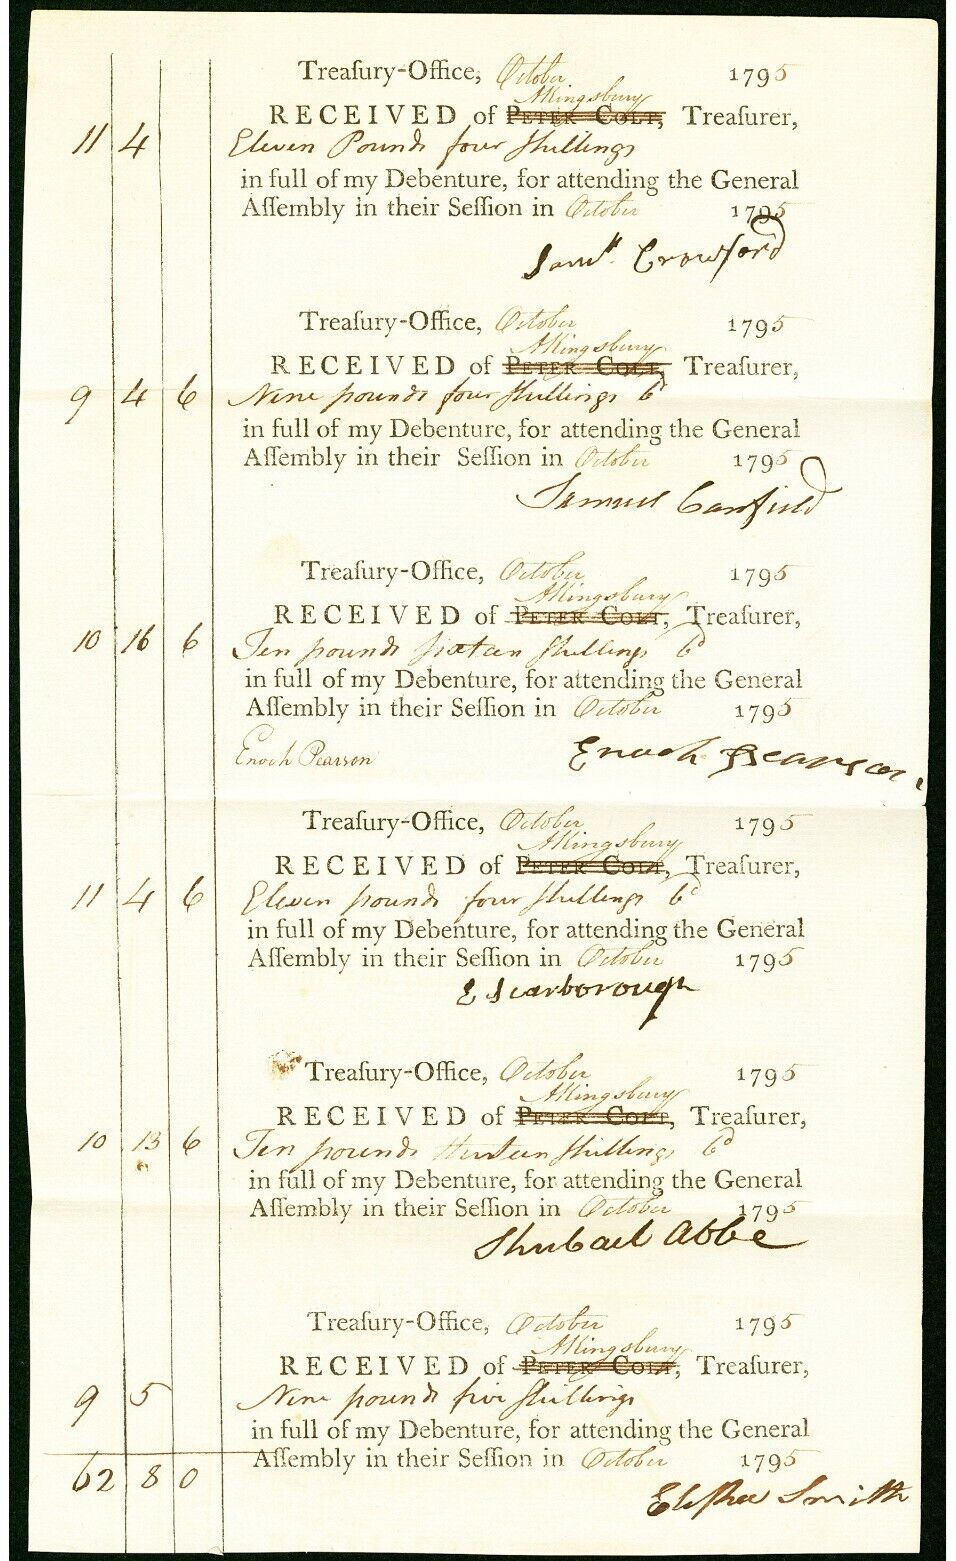 Treaſury-Office, October 1795
AKingsbury
RECEIVED of PETER COLT, Treaſurer,
11 4 Eleven Pounds four Shillings
in full of my Debenture, for attending the General
Aſſembly in their Seſſion in October 1795
Saml. Crawford
Treaſury-Office, October 1795
AKingsbury
RECEIVED of PETER COLT, Treaſurer,
9 4 6 Nine pounds four Shillings 6d
in full of my Debenture, for attending the General
Aſſembly in their Seſſion in October 1795
Samuel Canfield
Treaſury-Office, October 1795
AKingsbury
RECEIVED of PETER COLT, Treaſurer,
10 16 6 Ten pounds sixteen Shillings 6d
in full of my Debenture, for attending the General
Aſſembly in their Seſſion in October 1795
Enoch Pearson Enoch Pearson
Treaſury-Office, October 1795
AKingsbury
RECEIVED of PETER COLT, Treaſurer,
11 4 6 Eleven pounds four Shillings 6d
in full of my Debenture, for attending the General
Aſſembly in their Seſſion in October 1795
E Scarborough
Treaſury-Office, October 1795
AKingsbury
RECEIVED of PETER COLT, Treaſurer,
10 13 6 Ten pounds thirteen Shillings 6d
in full of my Debenture, for attending the General
Aſſembly in their Seſſion in October 1795
Shubael Abbe
Treaſury-Office, October 1795
AKingsbury
RECEIVED of PETER COLT, Treaſurer,
9 5 Nine pounds five Shillings
in full of my Debenture, for attending the General
Aſſembly in their Seſſion in October 1795
62 8 0
Smith